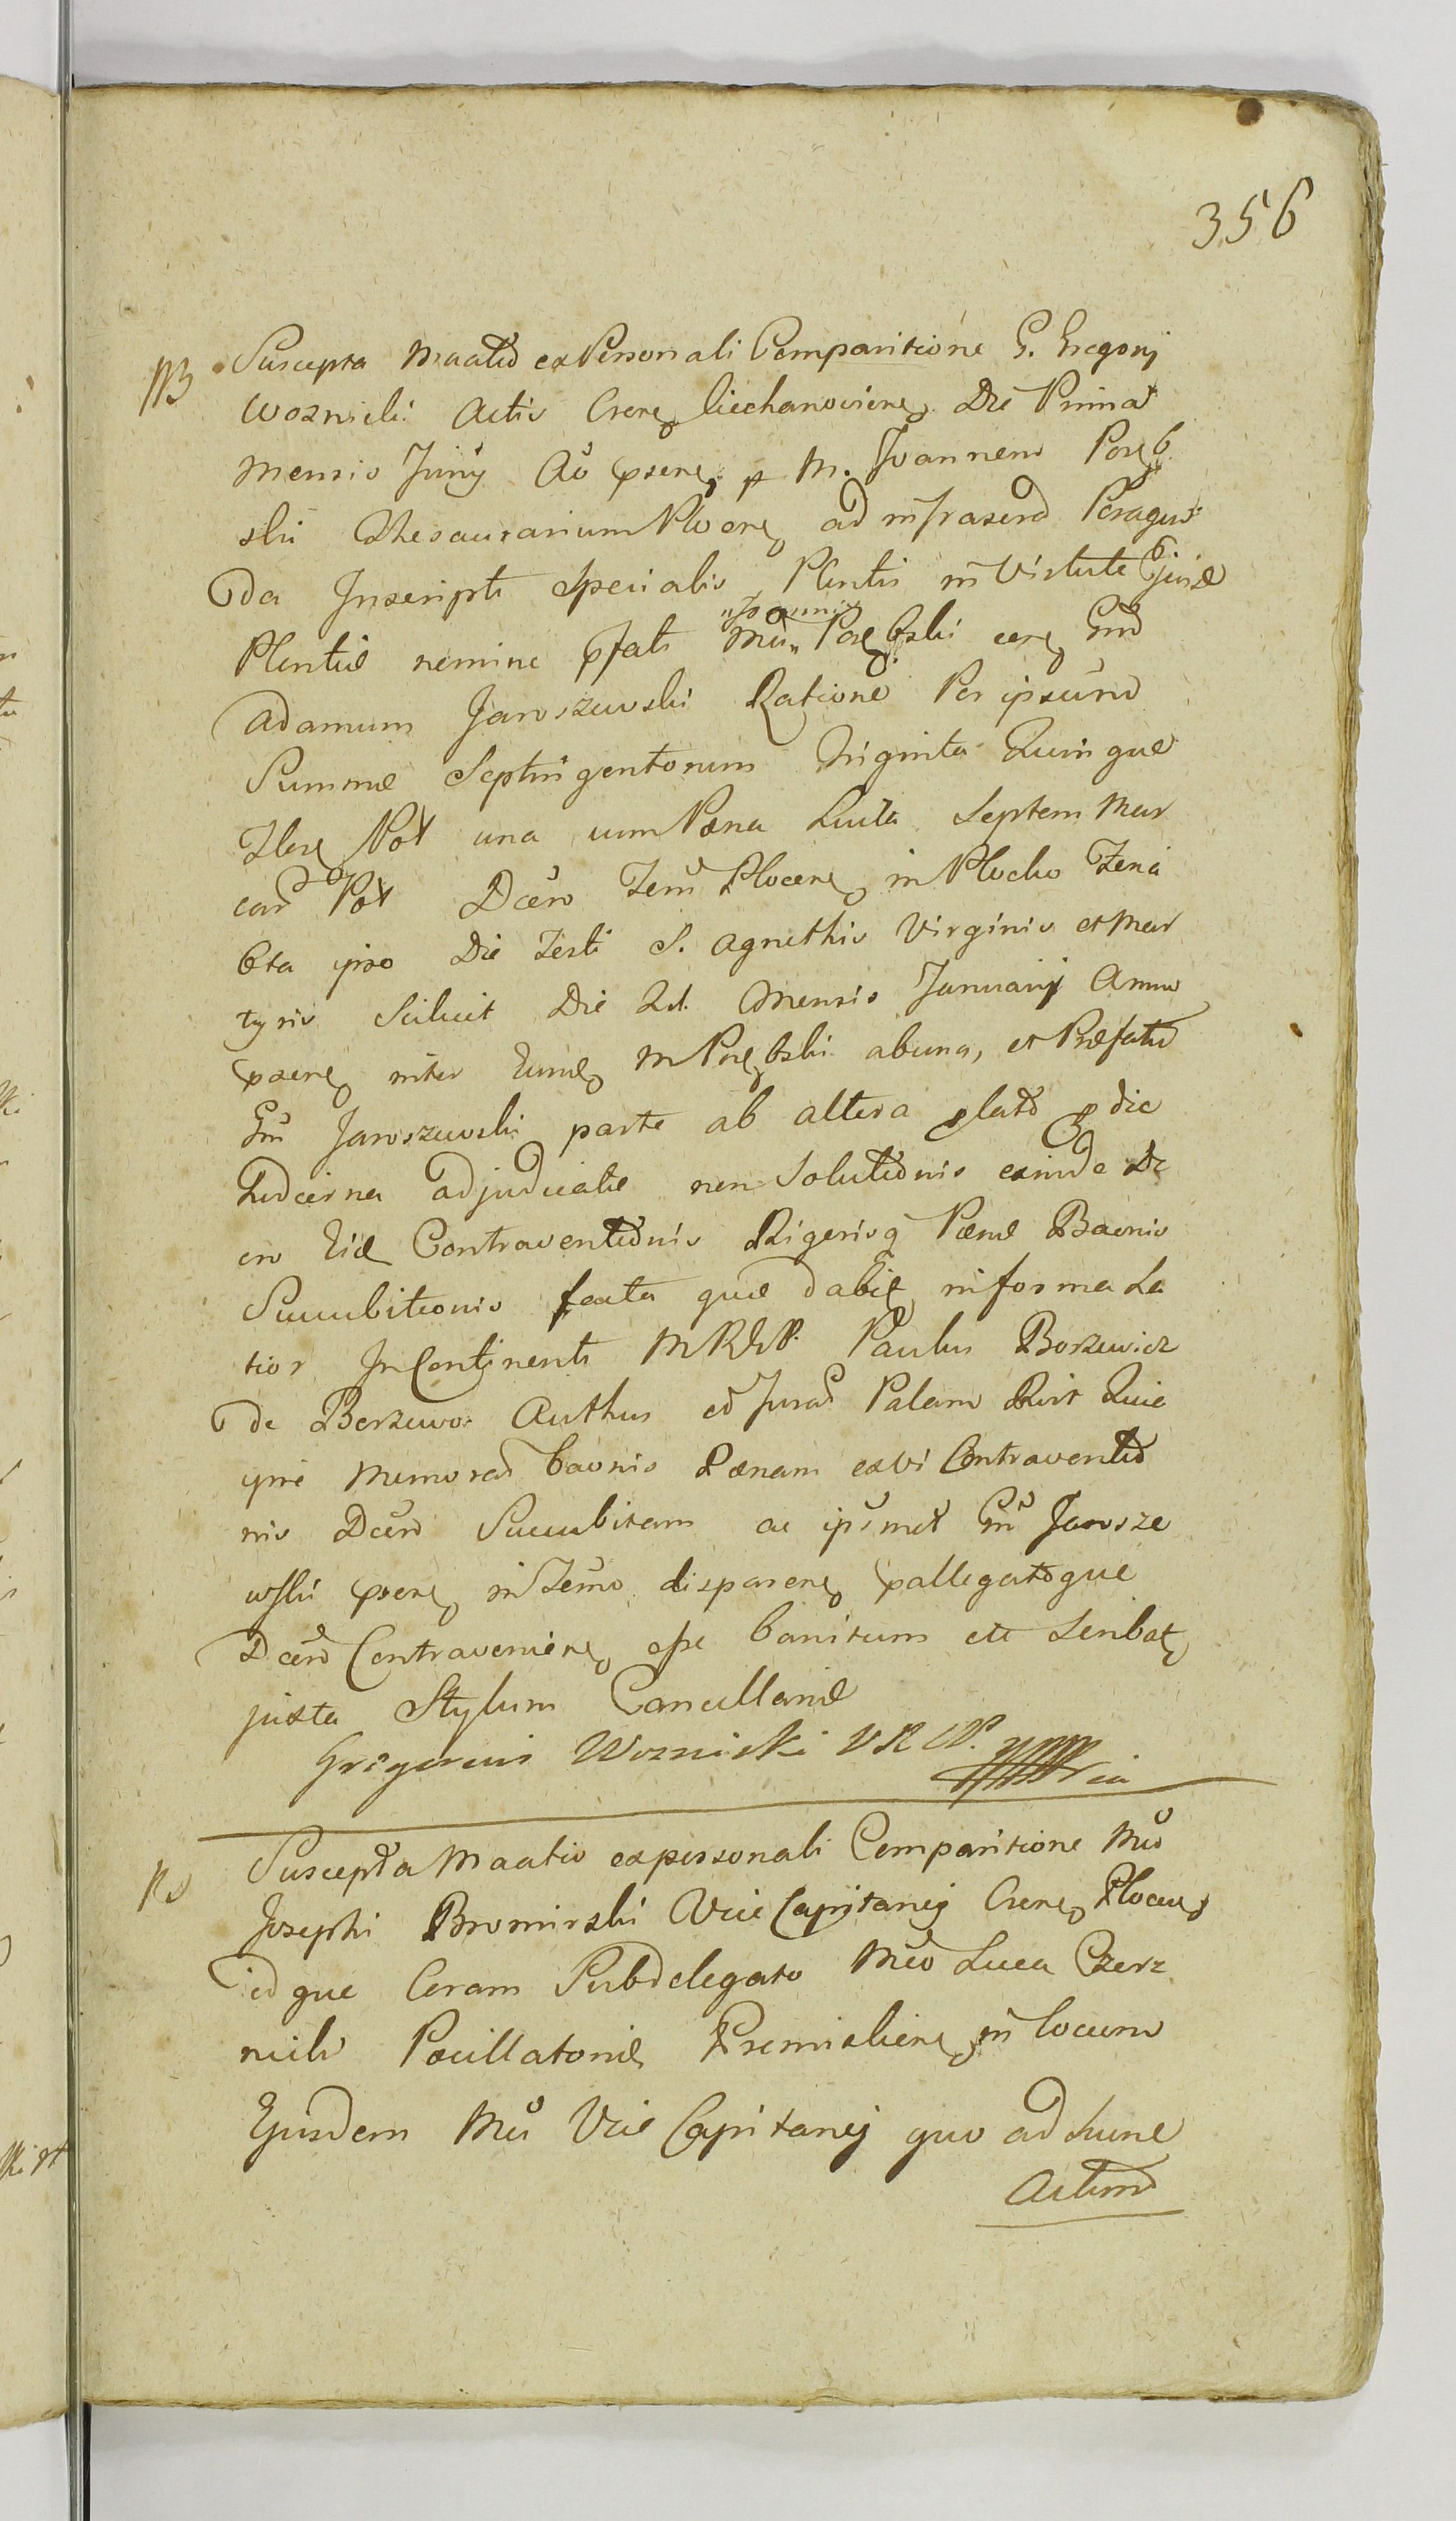 356
Suscepta Maatio ex Personali Comparitione G. Gregorij
Woznicki Actis Crens Ciechanoviens Die Prima
Mensis Junij Ao psens p M. Joannem Poręb
ski Thesaurarium Plocens ad infrascrd Peragen
da Inscripti Specialis Plentis in Virtute Ejusd
Plentiæ nomine pfati Mci "Joannis" Porębski cens Gnd
Adamum Jaroszewski Ratione Per ipsum
Summæ Septingentorum Triginta Quinque
Flors Pol una cum Pæna Lucta Septem Mar
card Pol Dcero Termi Plocens in Plocko Fena
bta ipso Die Festi S. Agnethis Virginis et Mar
tyris Scilicet Die 21. Mensis Januarij Anno
psens inter Eund M Porębski ab una, et Præfatu
Gm Jaroszewski parte ab altera plato p die
Hodierna adjudicatæ non Solutionis exinde De
cro Eid Contraventionis Rigorisq Pænæ Baonis
Succubitionis facta quæ dabit in forma La
tior In Continenti MRGP. Paulus Borzewicz
de Borzewo Actus ed Jurad Palam Rit Quia
ipse Memorad baonis Pænam ex vi Contraventio
nis Dcero Succubitam ac ipsmet Gm Jarosze
wski psens in Termo disparens pallegatoque
Dcero Contraveniens esse banitum ett Senbat
juxta Stylum Cancellariæ
Gregorius Woznicki VRCP. mppria
Suscepta Maatio ex personali Comparitione Mci
Josephi Bromirski Vice Capitanej Crens Plocens
id que Coram Subdelegato Mco Luca Czerz
nicki Pocillatoris Premisliens in locum
Ejusdem Mci Vice Capitanej quo ad hunc
Actum